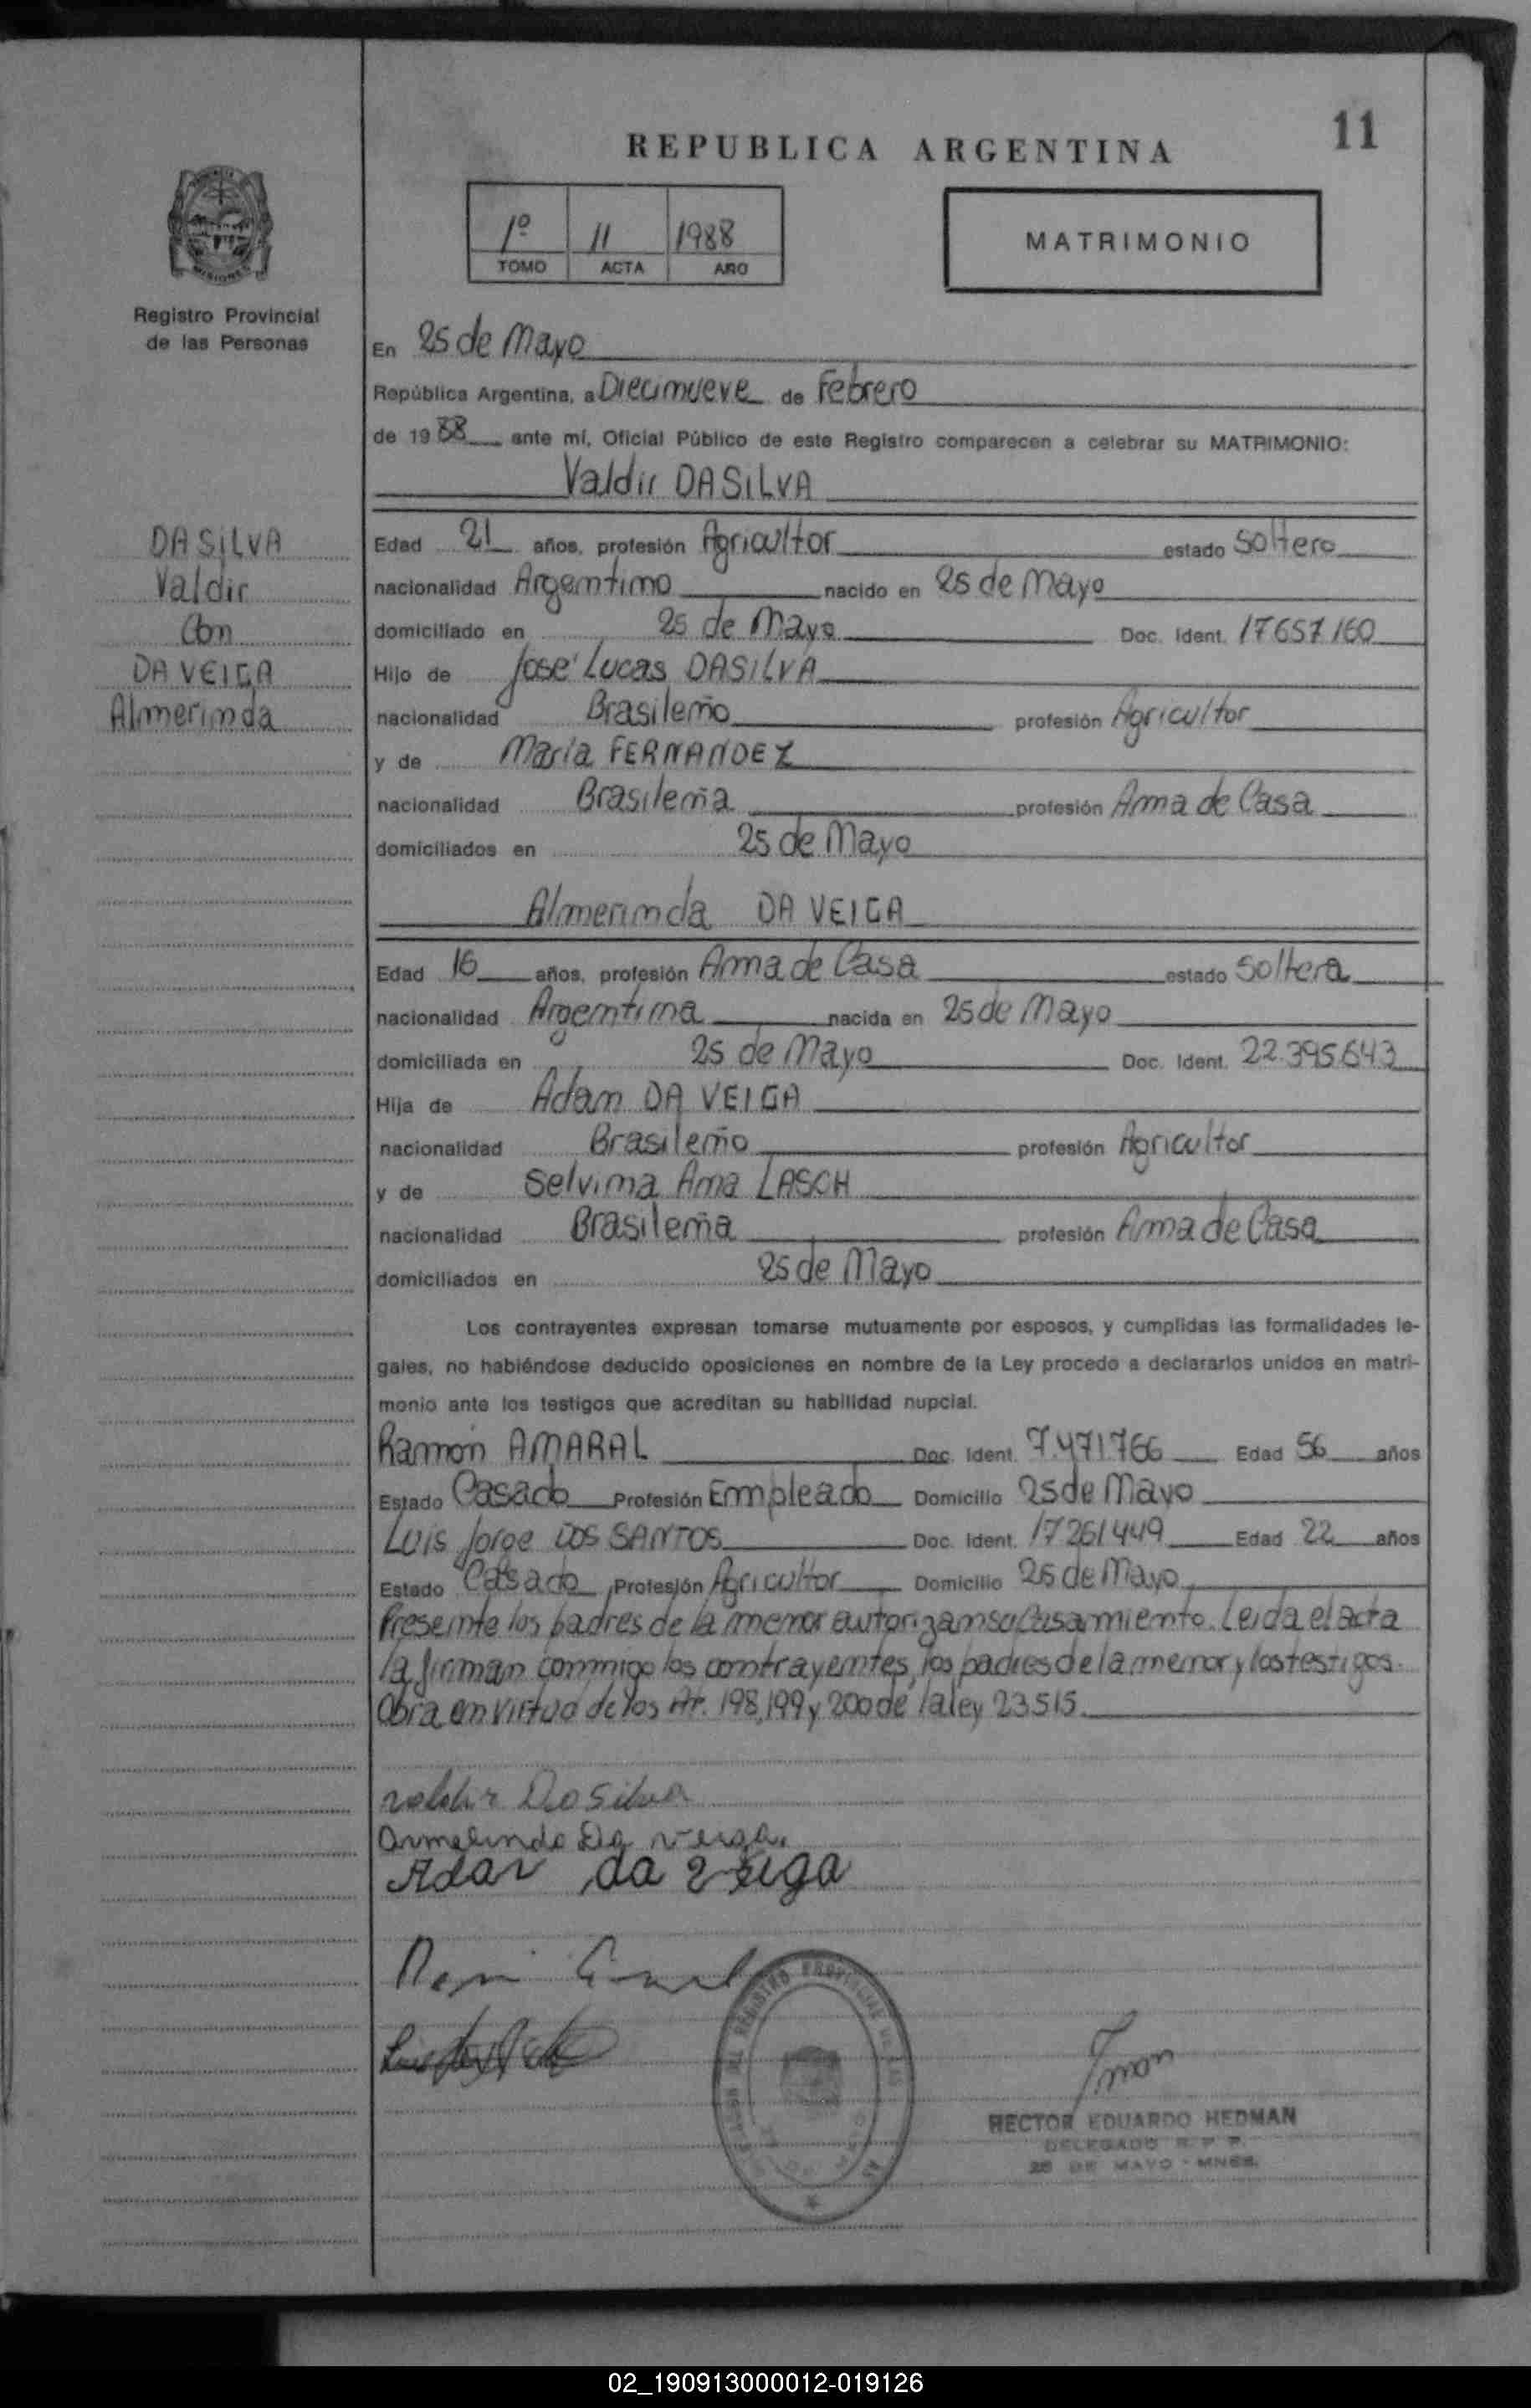 11
REPUBLICA ARGENTINA
1º 11 1988
TOMO ACTA AÑO
MATRIMONIO
MISIONES
Registro Provincial
de las Personas
En 25 de Mayo
República Argentina, a Diecinueve de Febrero
de 1988 ante mí, Oficial Público de este Registro comparecen a celebrar su MATRIMONIO:
Valdir DASILVA
DASILVA
Valdir
Con
DA VEIGA
Almerinda
Edad 21 años, profesión Agricultor estado Soltero
nacionalidad Argentino nacido en 25 de Mayo
domiciliado en 25 de Mayo Doc. Ident. 17657160
Hijo de José Lucas DASILVA
nacionalidad Brasileño profesión Agricultor
y de María FERNANDEZ
nacionalidad Brasileña profesión Ama de Casa
domiciliados en 25 de Mayo
Almerinda DA VEIGA
Edad 16 años, profesión Ama de Casa estado Soltera
nacionalidad Argentina nacida en 25 de Mayo
domiciliada en 25 de Mayo Doc. Ident. 22.395.643
Hija de Adam DA VEIGA
nacionalidad Brasileño profesión Agricultor
y de Selvina Ana LASCH
nacionalidad Brasileña profesión Ama de Casa
domiciliados en 25 de Mayo
Los contrayentes expresan tomarse mutuamente por esposos, y cumplidas las formalidades le-
gales, no habiéndose deducido oposiciones en nombre de la Ley procedo a declararlos unidos en matri-
monio ante los testigos que acreditan su habilidad nupcial.
Ramón AMARAL Doc. Ident. 7.471.766 Edad 56 años
Estado Casado Profesión Empleado Domicilio 25 de Mayo
Luis Jorge DOS SANTOS Doc. Ident. 17261449 Edad 22 años
Estado Casado Profesión Agricultor Domicilio 25 de Mayo
Presente los padres de la menor autorizan su Casamiento. Leida el acta
la firman conmigo los contrayentes, los padres de la menor y los testigos.
Obra en virtud de los Ar. 198, 199 y 200 de la ley 23515.
valdir Da Silva
Armelinda Da veiga.
Adan da veiga
HECTOR EDUARDO HEDMAN
DELEGADO R P P.
25 DE MAYO - MNES.
02_190913000012-019126